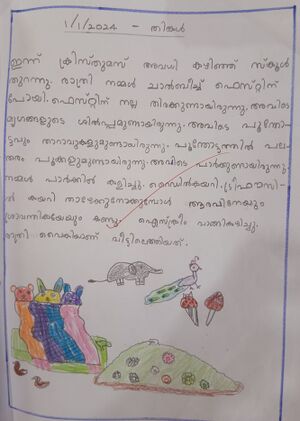 1/1/2024 - തിങ്കൾ
ഇന്ന് ക്രിസ്തുമസ് അവധി കഴിഞ്ഞ് സ്കൂൾ
തുറന്നു. രാത്രി നമ്മൾ ചാൽബീച്ച് ഫെസ്റ്റിന്
പോയി. ഫെസ്റ്റിന് നല്ല തിരക്കുണ്ടായിരുന്നു. അവിടെ
മൃഗങ്ങളുടെ ശിൽപ്പമുണ്ടായിരുന്നു. അവിടെ പൂന്തോ-
ട്ടവും താറാവുകളുമുണ്ടായിരുന്നു. പൂന്തോട്ടത്തിൽ പല
തരം പൂക്കളുമുണ്ടായിരുന്നു. അവിടെ പാർക്കുണ്ടായിരുന്നു
നമ്മൾ പാർക്കിൽ കളിച്ചു.
കയറി താഴേക്കുനോക്കുമ്പോൾ ആരവിനേയും
ശ്രാവന്തികയേയും കണ്ടു. ഐസ്ക്രീം വാങ്ങികഴിച്ചു.
രാത്രി വൈകിയാണ് വീട്ടിലെത്തിയത്.